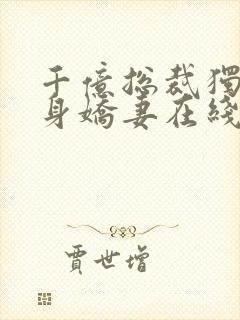 千億總裁獨
身嬌妻在綫
賈世增